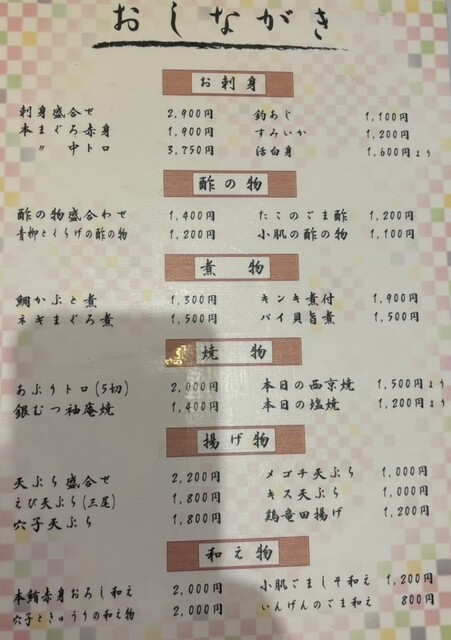 おしながき
お刺身
刺身盛合せ 2,900円
本まぐろ赤身 1,900円
〃 中トロ 3,750円
釣あじ 1,100円
すみいか 1,200円
活白身 1,600円より
酢の物
酢の物盛合わせ 1,400円
青柳とくらげの酢の物 1,200円
たこのごま酢 1,200円
小肌の酢の物 1,100円
煮物
鯛かぶと煮 1,300円
ネギまぐろ煮 1,500円
キンキ煮付 1,900円
バイ貝旨煮 1,500円
焼物
あぶりトロ(5切) 2,000円
銀むつ袖庵焼 1,400円
本日の西京焼 1,500円より
本日の塩焼 1,200円より
揚げ物
天ぷら盛合せ 2,200円
えび天ぷら(三尾) 1,800円
穴子天ぷら 1,800円
メゴチ天ぷら 1,000円
キス天ぷら 1,000円
鶏竜田揚げ 1,200円
和え物
本鮪赤身おろし和え 2,000円
穴子ときゅうりの和え物 2,000円
小肌ごましそ和え 1,200円
いんげんのごま和え 800円